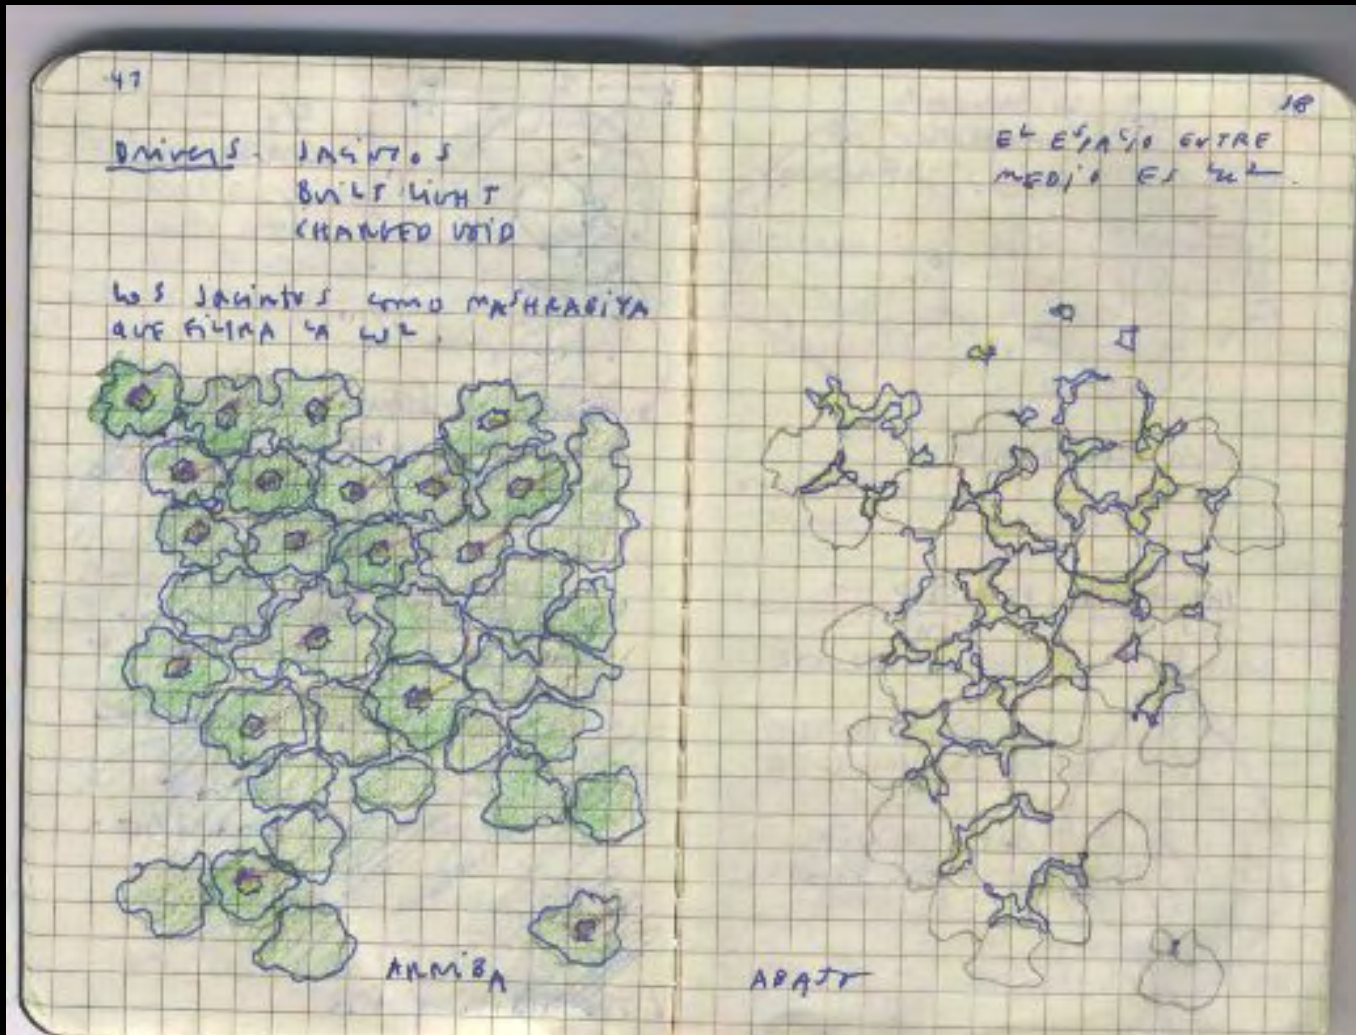 47
DRIVERS. JACINTOS
BUILT LIGHT
CHARGED VOID
LOS JACINTOS COMO MASHRABIYA
QUE FILTRA LA LUZ.
ARRIBA
18
EL ESPACIO ENTRE
MEDIO ES LUZ.
ABAJO